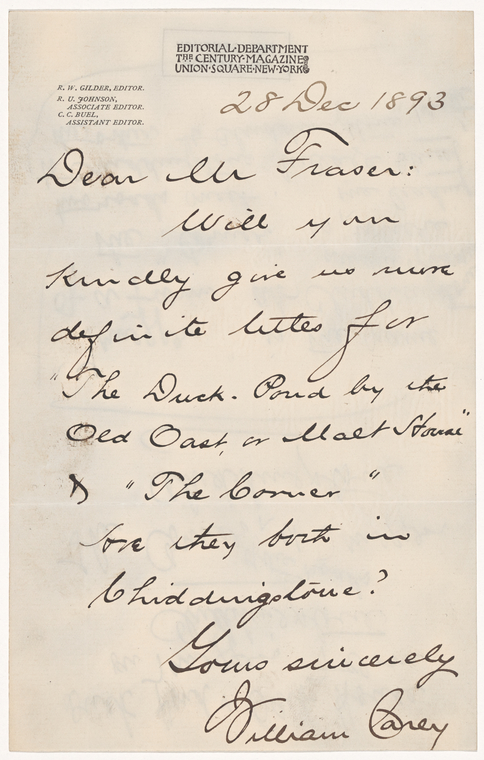 EDITORIAL·DEPARTMENT
THE CENTURY·MAGAZINE
UNION·SQUARE·NEW·YORK
R. W. GILDER, EDITOR.
R. U. JOHNSON,
ASSOCIATE EDITOR.
C. C. BUEL,
ASSISTANT EDITOR.
28 Dec 1893
Dear Mr Fraser:
Will you
kindly give us more
definite titles for
"The Duck-Pond by the
Old Oast, or Malt House"
& "The Corner"
Are they both in
Chiddingstone?
Yours sincerely
William Carey